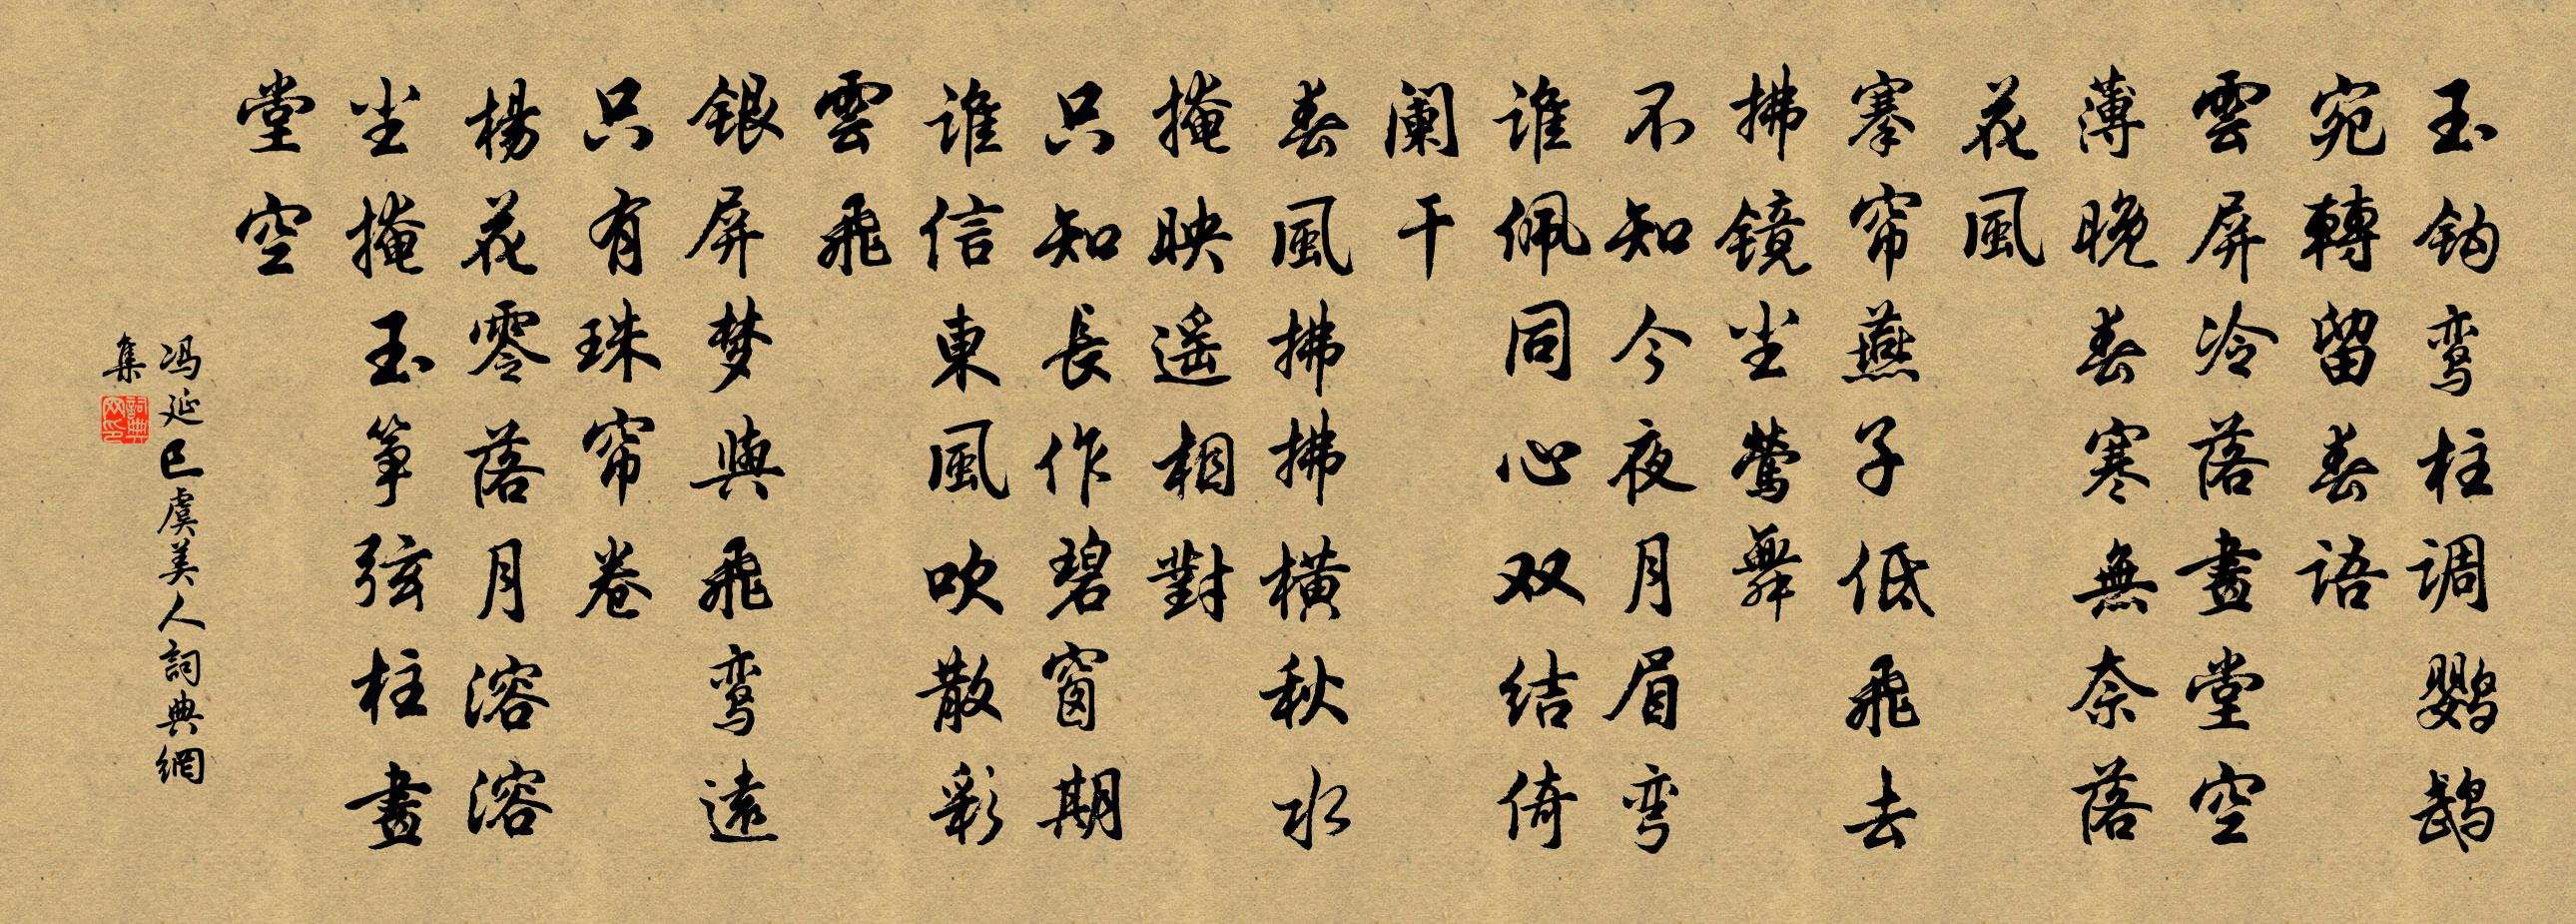 玉钩鸾柱调鹦鹉
宛轉留春语
雲屏冷落畫堂空
薄晚春寒無奈落
花風
搴帘燕子低飛去
拂镜尘莺舞
不知今夜月眉弯
谁佩同心双结倚
阑干
春風拂拂橫秋水
掩映遥相對
只知長作碧窗期
谁信東風吹散彩
雲飛
银屏梦與飛鸾遠
只有珠帘卷
楊花零落月溶溶
尘掩玉筝弦柱畫
堂空
冯延巳虞美人詞典網
集
詞典
网印